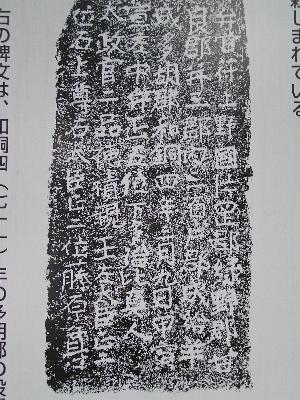 しまれている
弁官符上野國片罡郡緑野郡甘
良郡并三郡内三百戸郡成給羊
成多胡郡和銅四年三月九日甲寅
宣左中弁正五位下多治比真人
太政官二品穂積親王左太臣正二
位石上尊右太臣正二位藤原尊
右の碑文は、和銅四（七一一）年の多胡郡の設